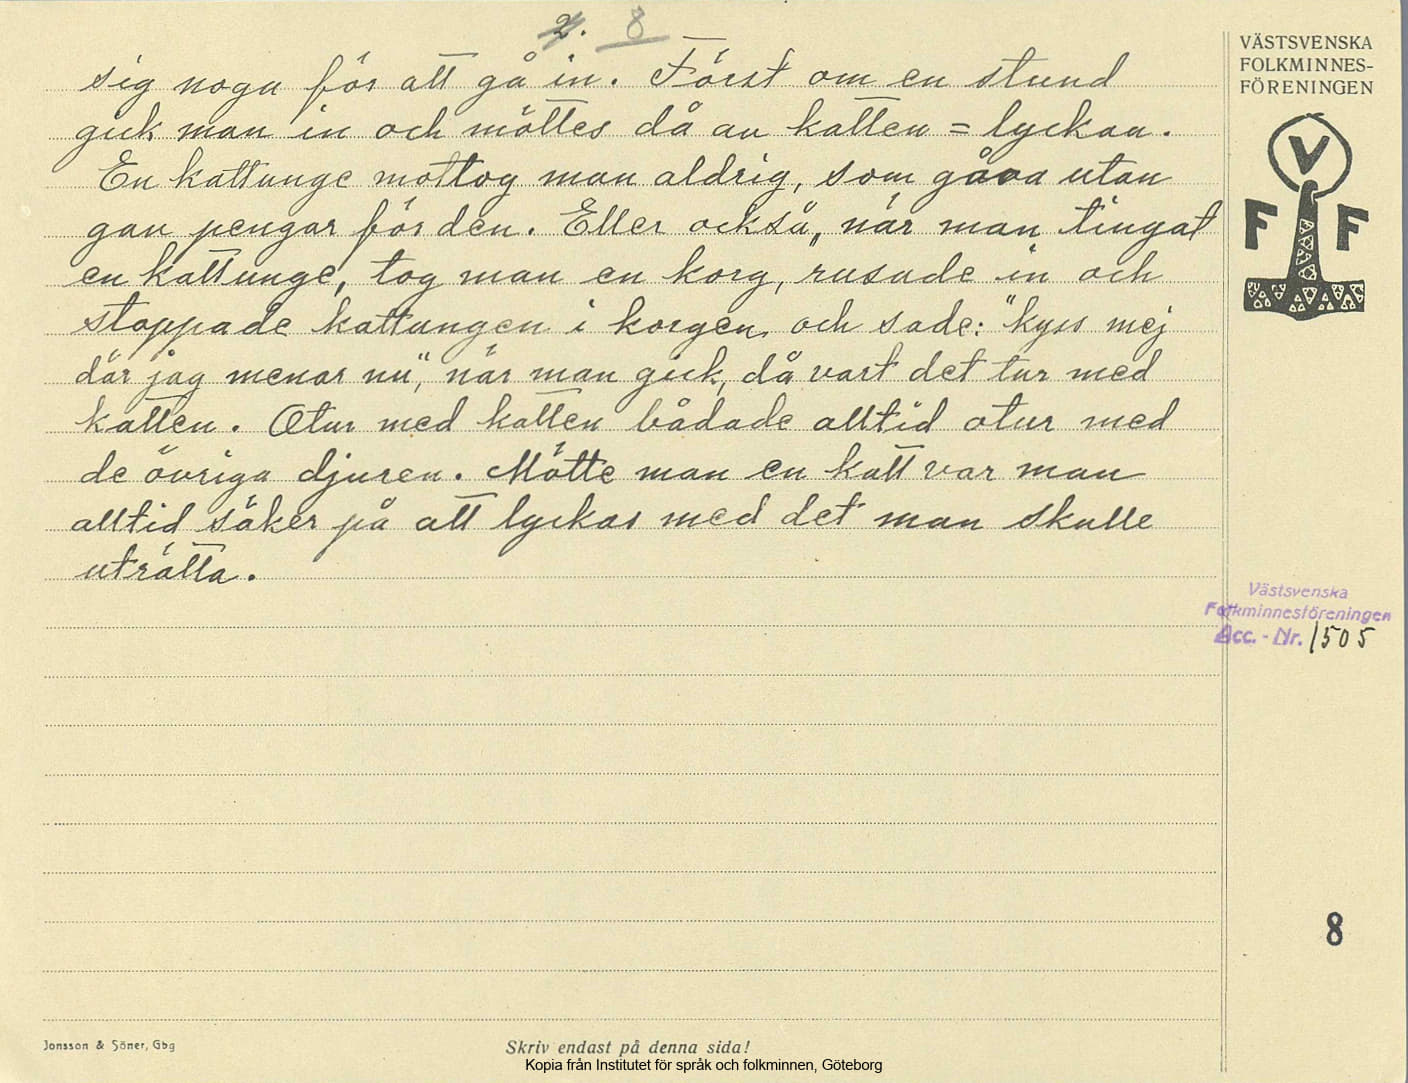 2. 8
sig noga för att gå in. Först om en stund
gick man in och möttes då av katten = lyckan.
En kattunge mottog man aldrig, som gåva utan
gav pengar för den. Eller också, när man tingat
en kattunge, tog man en korg, rusade in och
stoppade kattungen i korgen, och sade: "kyss mej
där jag menar nu", när man gick, då vart det tur med
katten. Otur med katten bådade alltid otur med
de övriga djuren. Mötte man en katt var man
alltid säker på att lyckas med det man skulle
uträtta.
VÄSTSVENSKA
FOLKMINNES-
FÖRENINGEN
V
F F
Västsvenska
Folkminnesföreningen
Acc. - Nr. 1505
8
Jonsson & Söner, Gbg
Skriv endast på denna sida!
Kopia från Institutet för språk och folkminnen, Göteborg